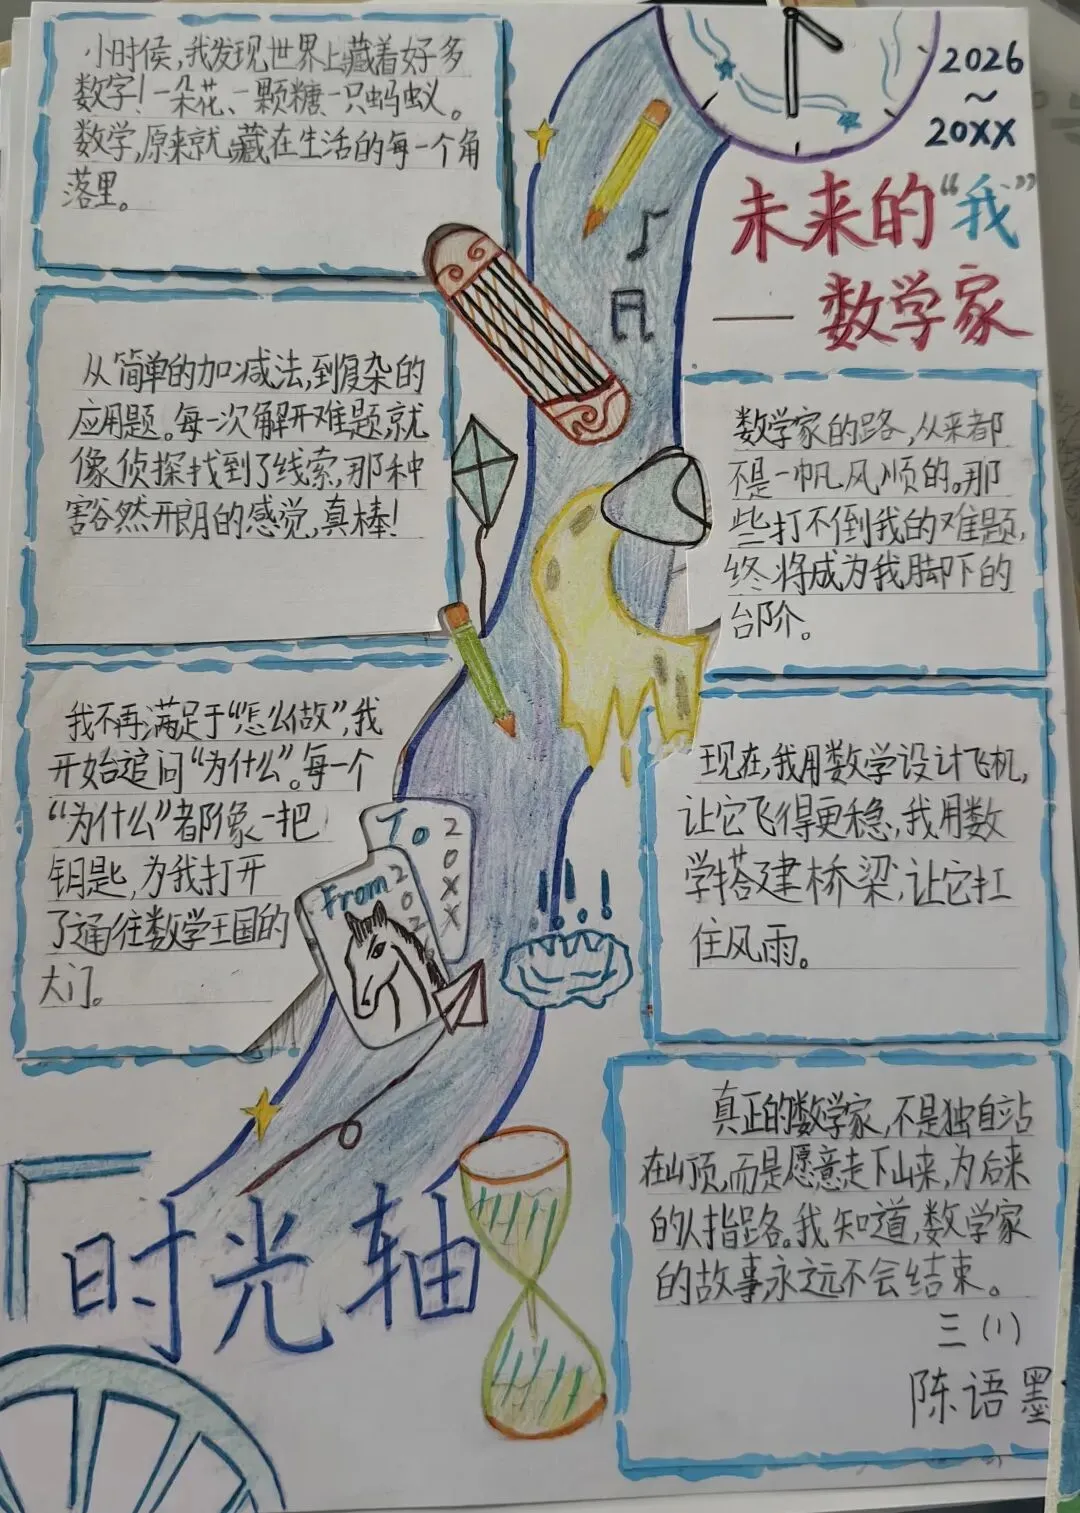 2026
~
20XX
未来的“我”
——数学家
小时侯,我发现世界上藏着好多
数字!一朵花、一颗糖、一只蚂蚁。
数学,原来就藏在生活的每一个角
落里。
从简单的加减法,到复杂的
应用题。每一次解开难题,就
像侦探找到了线索,那种
豁然开朗的感觉,真棒!
我不再满足于“怎么做”,我
开始追问“为什么”。每一个
“为什么”都像一把
钥匙,为我打开
了通往数学王国的
大门。
数学家的路,从来都
不是一帆风顺的。那
些打不倒我的难题,
终将成为我脚下的
台阶。
现在,我用数学设计飞机,
让它飞得更稳,我用数
学搭建桥梁,让它扛
住风雨。
真正的数学家,不是独自站
在山顶,而是愿意走下山来,为后来
的人指路。我知道,数学家
的故事永远不会结束。
三(1)
陈语墨
To
20XX
From
202
时光轴